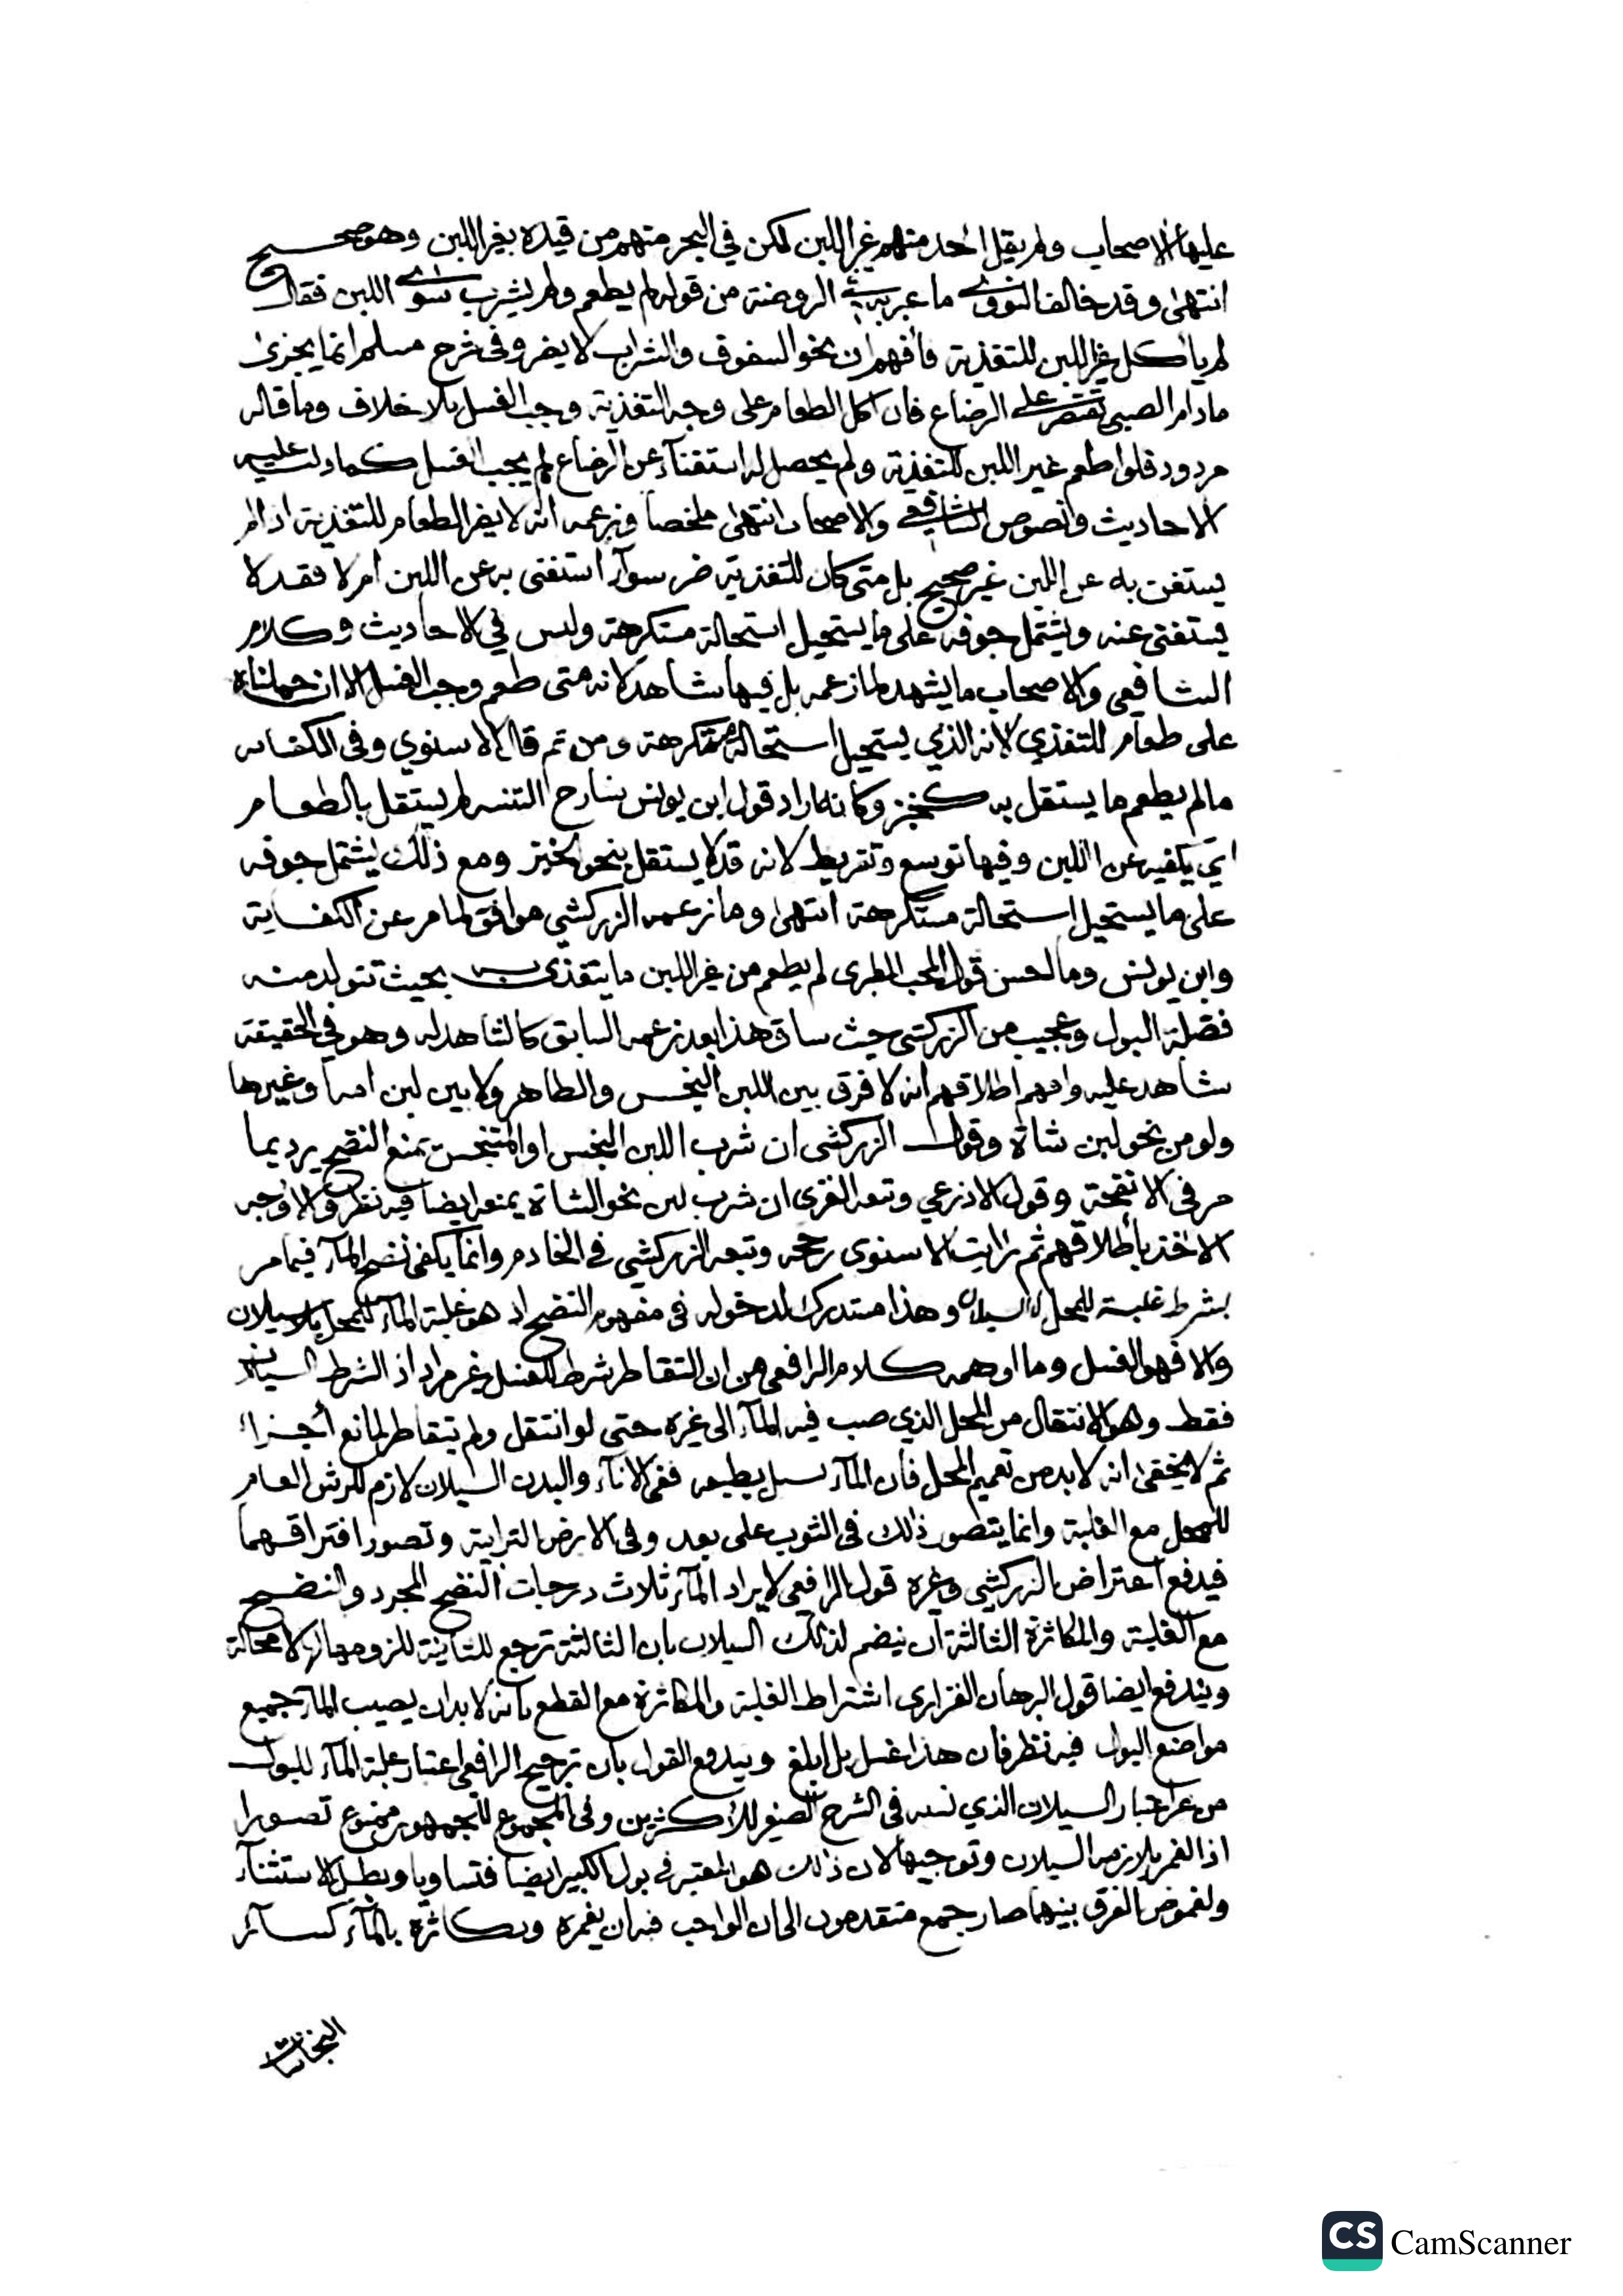 عليها الاصحاب ولم يقل احد منهم غير اللبن لكن في البحر منهم من قيده بغير اللبن وهو صحيح
انتهى وقد خالف النووي ما عبر به في الروضة من قوله لم يطعم ولم يشرب سوى اللبن فقال
لم يأكل غير اللبن للتغذية فأفهم ان نحو السفوف والشراب لا يضر وفي شرح مسلم انما يجزئ
مادام الصبي يقتصر على الرضاع فان اكل الطعام على وجه التغذية وجب الغسل بلا خلاف وما قاله
مردود فلو اطعم غير اللبن للتغذية ولم يحصل له استغناء عن الرضاع لم يجب الغسل كما دلت عليه
الاحاديث ونصوص الشافعي والاصحاب انتهى ملخصا وزعمه انه لا يضر الطعام للتغذية اذا لم
يستغن به عن اللبن غير صحيح بل متى كان للتغذية ضر سوآء استغنى به عن اللبن ام لا فقد لا
يستغنى عنه ويشتمل جوفه على ما يستحيل استحالة مستكرهة وليس في الاحاديث وكلام
الشافعي والاصحاب ما يشهد لما زعمه بل فيها شاهد لانه متى طعم وجب الغسل الا ان حملناه
على طعام للتغذي لانه الذي يستحيل استحالة مستكرهة ومن ثم قال الاسنوي وفي الكفايه
ما لم يطعم ما يستقل به كخبز وكانه اراد قول ابن يونس شارح التنبيه لم يستقل بالطعام
اي يكفيه عن اللبن وفيها توسع وتفريط لانه قد لا يستقل بنحو الخبز ومع ذلك يشتمل جوفه
على ما يستحيل استحالة مستكرهة انتهى وما زعمه الزركشي موافق لما مر عن الكفاية
وابن يونس وما احسن قول المحب الطبري لم يطعم من غير اللبن ما يتغذى به بحيث تتولد منه
فضلة البول وعجيب من الزركشي حيث ساق هذا بعد زعمه السابق كالشاهد له وهو في الحقيقة
شاهد عليه وافهم اطلاقهم انه لا فرق بين اللبن النجس والطاهر ولا بين لبن امه وغيرها
ولو من نحو لبن شاة وقول الزركشي ان شرب اللبن النجس او المتنجس يمنع النضح يرد بما
مر في الانفحة وقول الاذرعي وتبعه الغزي ان شرب لبن نحو الشاة يمنعه ايضا فيه نظر والاوجه
الاخذ بأطلاقهم ثم رايت الاسنوي رجحه وتبعه الزركشي في الخادم وانما يكفي نضح المآء فيما مر
بشرط غلبته للمحل بلا سيلان وهذا مستدرك لدخوله في مفهوم النضح اذ هو غلبة المآء للمحل بلا سيلان
والا فهو الغسل وما اوهمه كلام الرافعي من ان التقاطر شرط للغسل غير مراد اذ الشرط السيلان
فقط وهو الانتقال من المحل الذي صب فيه المآء الى غيره حتى لو انتقل ولم يتقاطر لمانع أجزاء
ثم لا يخفى انه لا بد من تعميم المحل فان المآء يسيل بطبعه ففي الانآء والبدن السيلان لازم للرش العام
للمحل مع الغلبة وانما يتصور ذلك في الثوب على بعد وفي الارض الترابية وتصور افتراقهما
فيدفع اعتراض الزركشي وغيره قول الرافعي لايراد المآء ثلاث درجات النضح المجرد والنضح
مع الغلبة والمكاثرة الثالثة ان ينضم لذلك السيلان بان الثالثة ترجع للثانية للزومها لها لا محالة
ويندفع ايضا قول البرهان الفزاري اشتراط الغلبة والمكاثرة مع القطع بانه لا بد ان يصيب المآء جميع
مواضع البول فيه نظر فان هذا غسل بل ابلغ ويندفع القول بان ترجيح الرافعي اعتبار غلبة المآء للبول
من غير اعتبار السيلان الذي نسبه في الشرح الصغير للأكثرين وفي المجموع للجمهور ممنوع تصورا
اذ الغمر يلازمه السيلان وتوجيها لان ذلك هو المعتبر في بول الكبير ايضا فتساويا وبطل الاستثنآء
ولغموض الفرق بينهما صار جمع متقدمون الى ان الواجب فيه ان يغمره ويكاثره بالمآء كسآئر
النجاسات
CS CamScanner